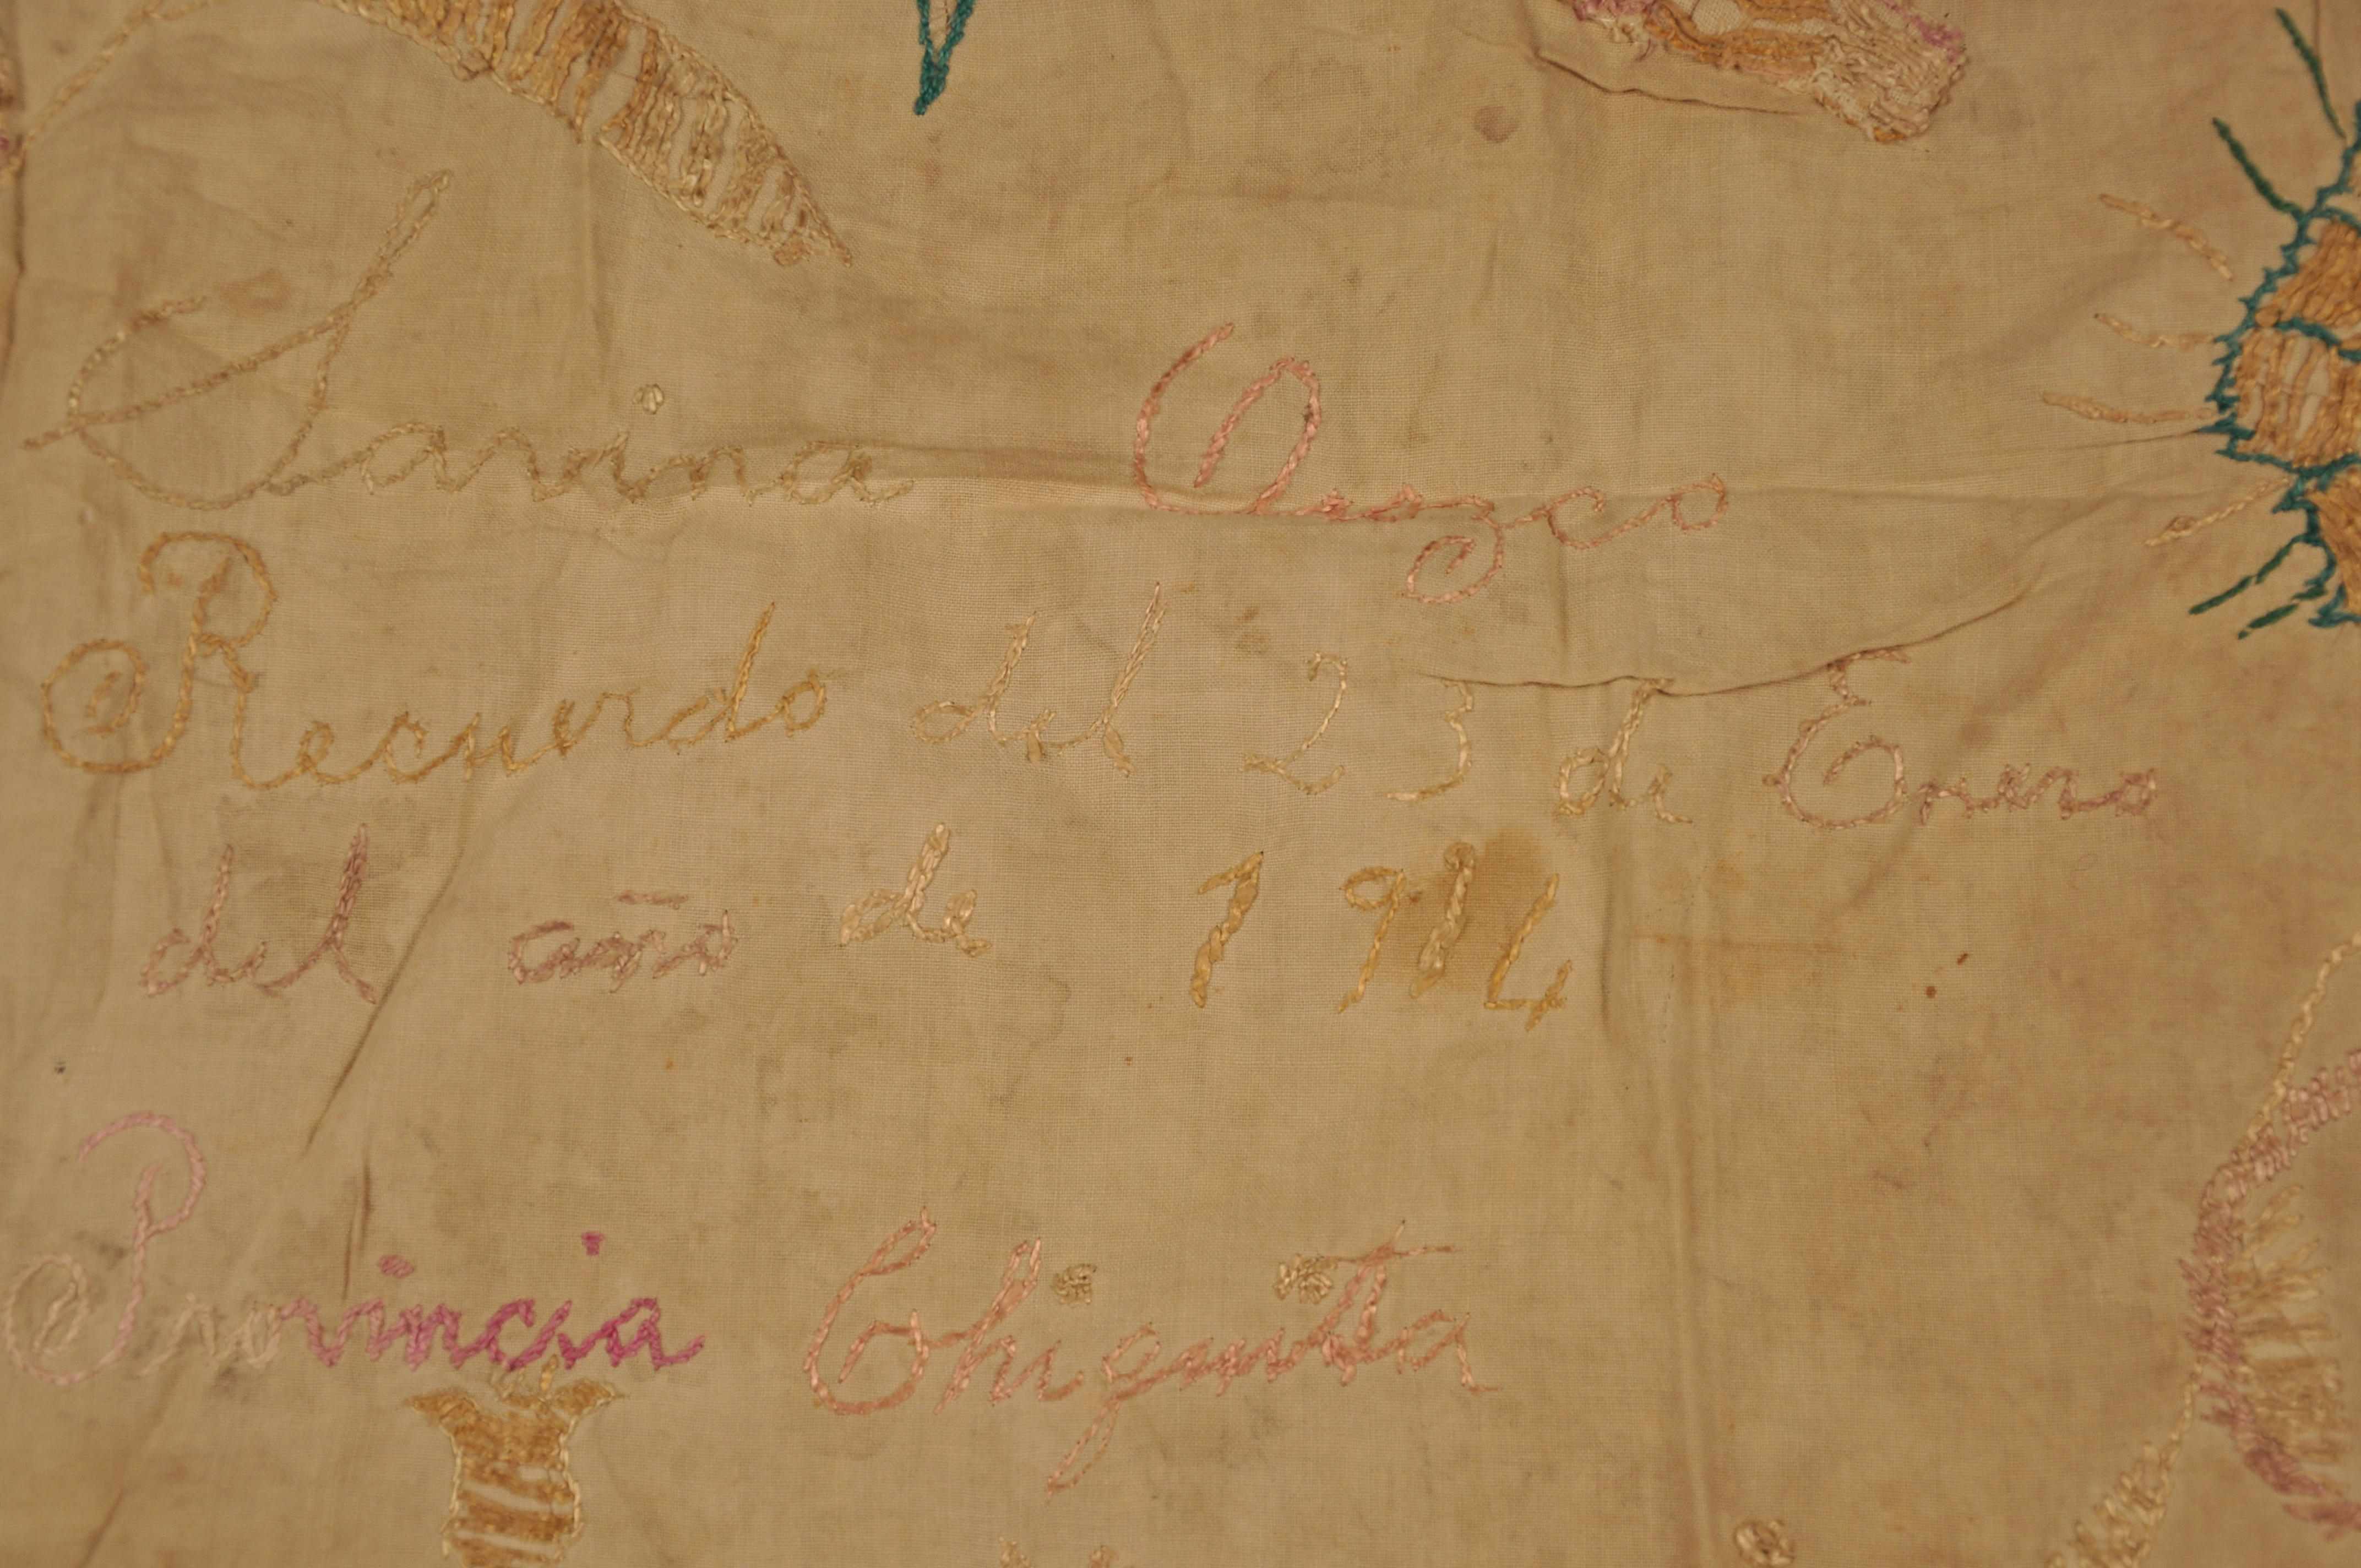 Savina Orozco
Recuerdo del 23 de Enero
del año de 1914
Provincia Chiquita